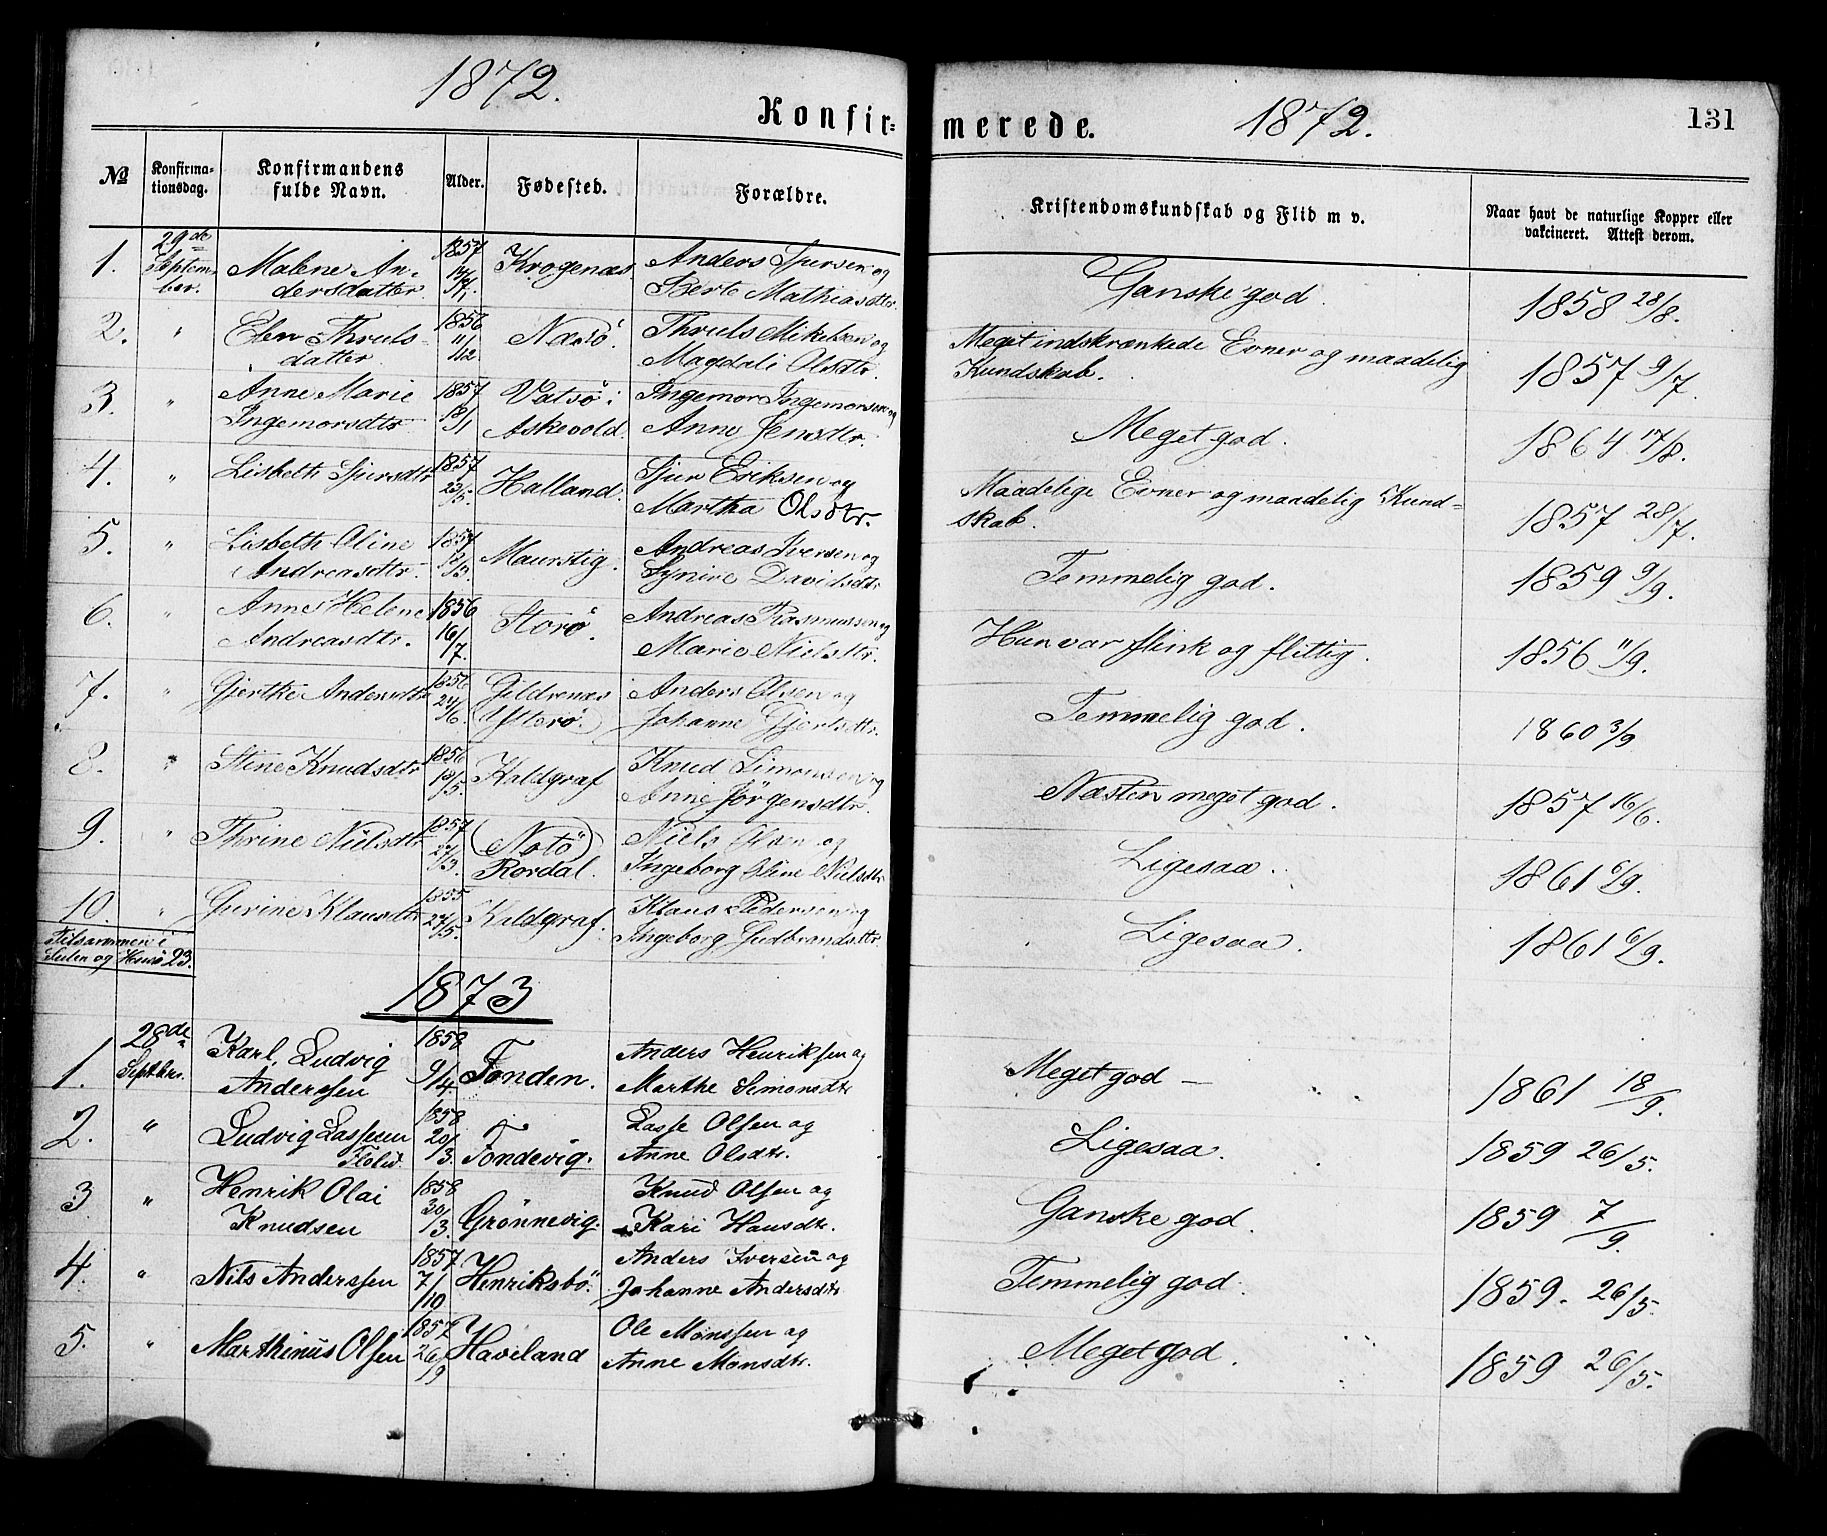 1872.
Konfir=
merede.
1872.
131
№
Konfirma-
tionsdag.
Konfirmandens
fulde Navn.
Alder.
Fødested.
Forældre.
Kristendomskundskab og Flid m v.
Naar havt de naturlige Kopper eller
vakcineret. Attest derom.
1. 29de Septem- ber. Malene An- dersdatter 1857 Krogenæs Anders Sjursen og
Berte Mathiasdtr. Ganske god. 1858 28/8.
2. " Elen Thruls- datter 1856 11/12. Næsö. Thruls Mikelsen og
Magdeli Olsdtr. Meget indskrænkede Evner og maadelig
Kundskab. 1857 9/7.
3. " Anne Marie Ingemorsdtr 1857 18/1 Vatsö i Askevold. Ingemor Ingemorsen og
Anne Jensdtr. Meget god. 1864 17/8.
4. " Lisbeth Sjursdtr 1857 23/5. Halland. Sjur Eriksen og
Martha Olsdtr. Maadelige Evner og maadelig Kund=
skab. 1857 28/7.
5. " Lisbeth Oline Andreasdtr. 1857 12/3. Maurstig. Andreas Iversen og
Synive Davidsdtr Temmelig god. 1859 9/9.
6. " Anne Helene Andreasdtr. 1856 16/7. Storö. Andreas Rasmussen og
Marie Nielsdtr. Hun var flink og flittig. 1856 11/9.
7. " Gjertke Andersdtr 1856 24/6. Gildrenæs (Ytterö.) Anders Olsen og
Johanne Gjertsdtr. Temmelig god. 1860 3/9
8. " Stine Knudsdtr 1856 19/5. Kaldgraf Knud Simonsen og
Anne Jörgensdtr. Næsten meget god. 1857 16/6.
9. " Thrine Nielsdtr 1857 27/3. (Notö) Rordal. Niels Olsen og
Ingeborg Oline Nielsdtr Ligesaa. 1861 6/9.
10. " Gurine Klausdtr 1855 27/5. Kaldgraf. Klaus Pedersen og
Ingeborg Gudbrandsdtr. Ligesaa. 1861 6/9.
Tilsammen i
Sulen og Husö 23.
1873
1. 28de Septbr. Karl Ludvig Anderssen 1858 9/4. Tonden. Anders Henriksen og
Marthe Simonsdtr Meget god — 1861 18/9.
2. " Ludvig Lassesen 1858 20/3. Tondevig. Lasse Olsen og
Anne Olsdtr. Ligesaa. 1859 26/5.
3 " Henrik Olai Knudsen 1858 30/3. Grönnevig. Knud Olsen og
Kari Hansdtr. Ganske god. 1859 7/9.
4. " Nils Anderssen 1857 7/10 Henriksbö. Anders Iversen og
Johanne Andersdtr Temmelig god. 1859. 26/5.
5. " Marthinus Olsen 1857 26/9 Haveland Ole Monssen og
Anne Monsdtr. Meget god. 1859 26/5.